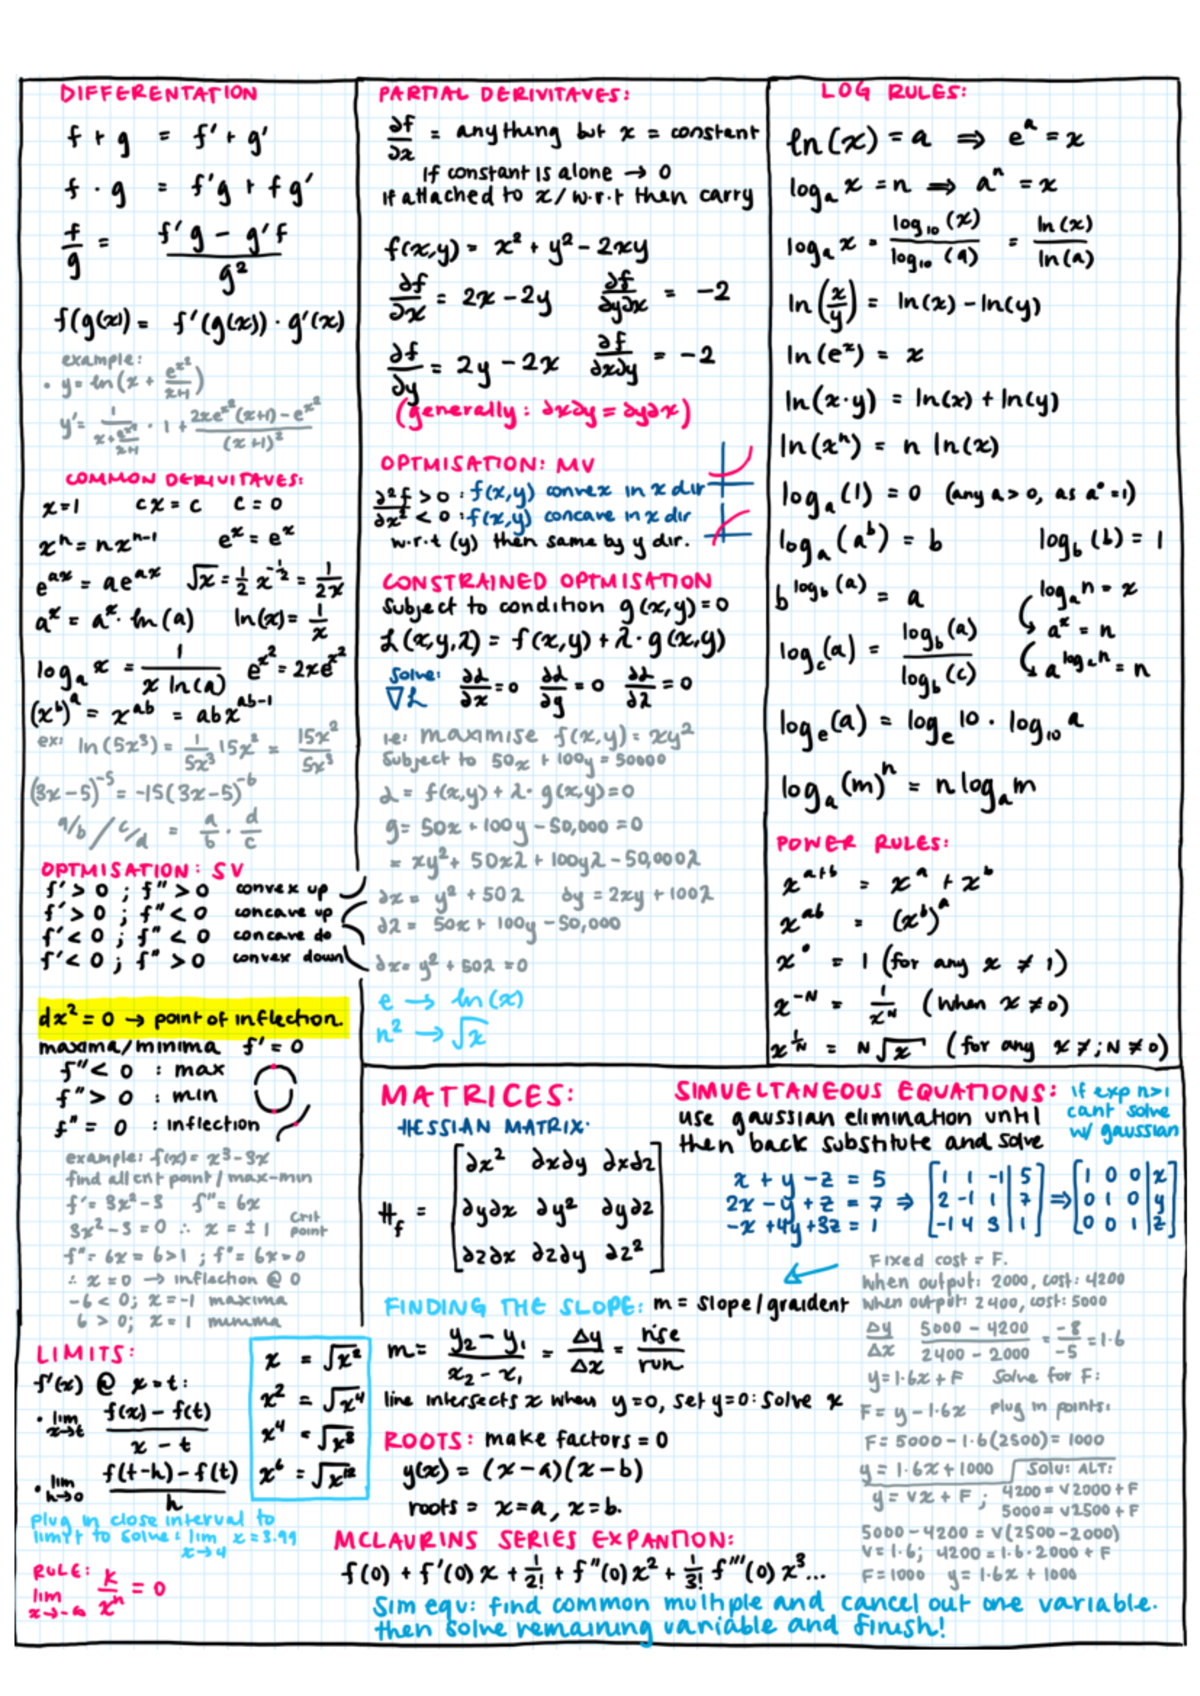 DIFFERENTATION
f + g = f' + g'
f · g = f'g + fg'
f/g = (f'g - g'f)/g²
f(g(x)) = f'(g(x)) · g'(x)
example:
• y = ln(x + e^(x²)/(x+1))
y' = 1/(x + e^(x²)/(x+1)) · 1 + (2xe^(x²)(x+1) - e^(x²))/(x+1)²
COMMON DERIVITAVES:
x = 1 cx = c c = 0
xⁿ = nxⁿ⁻¹ eˣ = eˣ
e^(ax) = ae^(ax) √x = 1/2 x^(-1/2) = 1/(2x)
aˣ = aˣ · ln(a) ln(x) = 1/x
logₐx = 1/(x ln(a)) e^(x²) = 2xe^(x²)
(x^b)^a = x^(ab) = abx^(ab-1)
ex: ln(5x³) = 1/(5x³) 15x² = 15x²/5x³
(3x-5)⁻⁵ = -15(3x-5)⁻⁶
a/b / c/d = a/b · d/c
OPTMISATION: SV
f' > 0 ; f" > 0 convex up
f' > 0 ; f" < 0 concave up
f' < 0 ; f" < 0 concave do
f' < 0 ; f" > 0 convex down
dx² = 0 → point of inflection.
maxima/minima f' = 0
f" < 0 : max
f" > 0 : min
f" = 0 : inflection
example: f(x) = x³-3x
find all crit point / max-min
f' = 3x²-3 f" = 6x
3x²-3 = 0 ∴ x = ±1 crit point
f" = 6x = 6>1 ; f" = 6x = 0
∴ x = 0 → inflection @ 0
-6 < 0; x = -1 maxima
6 > 0; x = 1 minima
LIMITS:
f'(x) @ x = t:
• lim x→t (f(x) - f(t))/(x - t)
• lim h→0 (f(t-h) - f(t))/h
plug in close interval to
limit to solve: lim x→4 x = 3.99
RULE:
lim x→-∞ k/xⁿ = 0
x = √x²
x² = √x⁴
x⁴ = √x⁸
x⁶ = √x¹²
PARTIAL DERIVITAVES:
∂f/∂x = anything but x = constant
If constant is alone → 0
If attached to x / w.r.t then carry
f(x,y) = x² + y² - 2xy
∂f/∂x = 2x - 2y ∂f/∂y∂x = -2
∂f/∂y = 2y - 2x ∂f/∂x∂y = -2
(generally: ∂x∂y = ∂y∂x)
OPTMISATION: MV
∂²f/∂x² > 0 : f(x,y) convex in x dir
< 0 : f(x,y) concave in x dir
w.r.t (y) then same by y dir.
CONSTRAINED OPTMISATION
Subject to condition g(x,y) = 0
L(x,y,λ) = f(x,y) + λ · g(x,y)
Solve: ∇L ∂L/∂x = 0 ∂L/∂y = 0 ∂L/∂λ = 0
ie: maximise f(x,y) = xy²
Subject to 50x + 100y = 50000
L = f(x,y) + λ · g(x,y) = 0
g = 50x + 100y - 50,000 = 0
= xy² + 50xλ + 100yλ - 50,000λ
∂x = y² + 50λ ∂y = 2xy + 100λ
∂λ = 50x + 100y - 50,000
∂x = y² + 50λ = 0
e → ln(x)
n² → √x
LOG RULES:
ln(x) = a ⇒ eᵃ = x
logₐx = n ⇒ aⁿ = x
logₐx = log₁₀(x)/log₁₀(a) = ln(x)/ln(a)
ln(x/y) = ln(x) - ln(y)
ln(eˣ) = x
ln(x·y) = ln(x) + ln(y)
ln(xⁿ) = n ln(x)
logₐ(1) = 0 (any a > 0, as a° = 1)
logₐ(a^b) = b log_b(b) = 1
b^(log_b(a)) = a logₐn = x
aˣ = n
log_c(a) = log_b(a)/log_b(c) a^(logₐn) = n
logₑ(a) = logₑ10 · log₁₀a
logₐ(m)ⁿ = n logₐm
POWER RULES:
x^(a+b) = x^a + x^b
x^(ab) = (x^b)^a
x° = 1 (for any x ≠ 1)
x^(-N) = 1/x^N (when x ≠ 0)
x^(1/N) = N√x (for any x ≠ ; N ≠ 0)
MATRICES:
HESSIAN MATRIX:
H_f = [∂x² ∂x∂y ∂x∂z
∂y∂x ∂y² ∂y∂z
∂z∂x ∂z∂y ∂z²]
SIMUELTANEOUS EQUATIONS:
if exp n>1
cant solve
w/ gaussian
use gaussian elimination until
then back substitute and solve
x + y - z = 5 [1 1 -1 | 5] [1 0 0 | x]
2x - y + z = 7 ⇒ [2 -1 1 | 7] ⇒ [0 1 0 | y]
-x + 4y + 3z = 1 [-1 4 3 | 1] [0 0 1 | z]
FINDING THE SLOPE: m = slope/graident
m = (y₂ - y₁)/(x₂ - x₁) = Δy/Δx = rise/run
line intersects x when y=0, set y=0: solve x
ROOTS: make factors = 0
y(x) = (x-a)(x-b)
roots = x=a, x=b.
Fixed cost = F.
When output: 2000, cost: 4200
When output: 2400, cost: 5000
Δy/Δx (5000 - 4200)/(2400 - 2000) = -8/-5 = 1.6
y = 1.6x + F Solve for F:
F = y - 1.6x plug in points:
F = 5000 - 1.6(2500) = 1000
y = 1.6x + 1000 Solu: ALT:
y = vx + F ; 4200 = v2000 + F
5000 = v2500 + F
5000 - 4200 = v(2500 - 2000)
v = 1.6; 4200 = 1.6·2000 + F
F = 1000 y = 1.6x + 1000
MCLAURINS SERIES EXPANTION:
f(0) + f'(0)x + 1/2! + f"(0)x² + 1/3! f'''(0)x³...
Sim equ: find common multiple and cancel out one variable.
then solve remaining variable and finish!